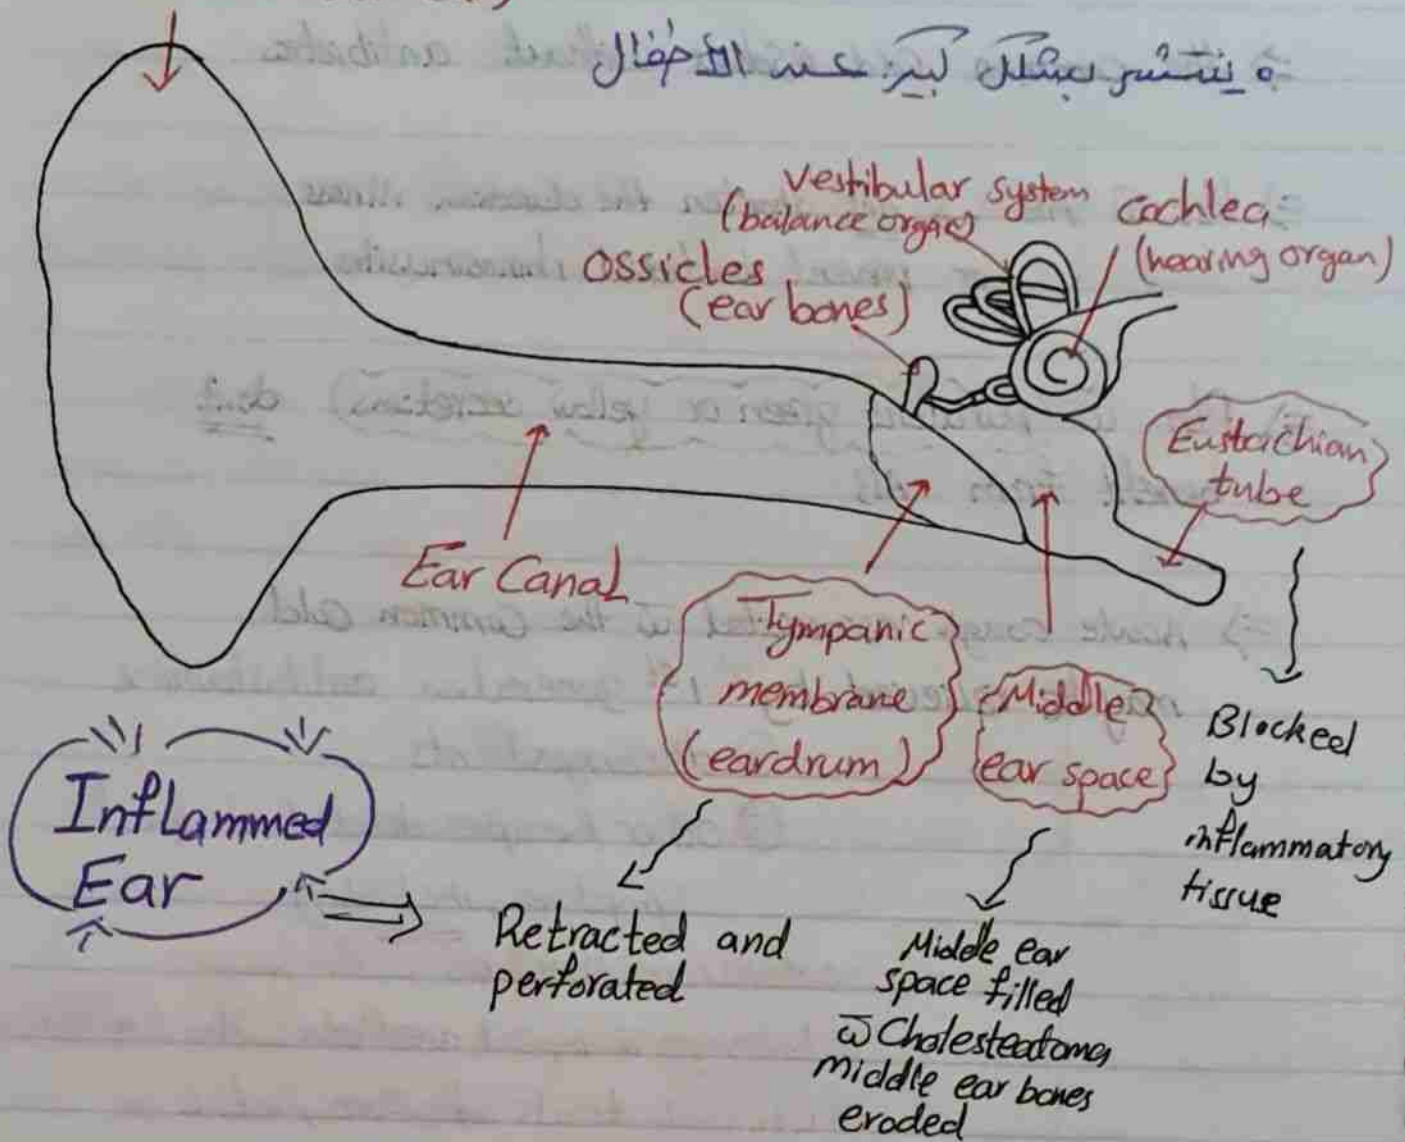 ينتشر بشكل كبير عند الأطفال
vestibular system
(balance organ)
Cochlea
(hearing organ)
Ossicles
(ear bones)
Eustachian
tube
Ear Canal
Tympanic
membrane
(eardrum)
Middle
ear space
Blocked
by
inflammatory
tissue
Inflammed
Ear
Retracted and
perforated
Middle ear
space filled
w̄ Cholesteatoma,
middle ear bones
eroded